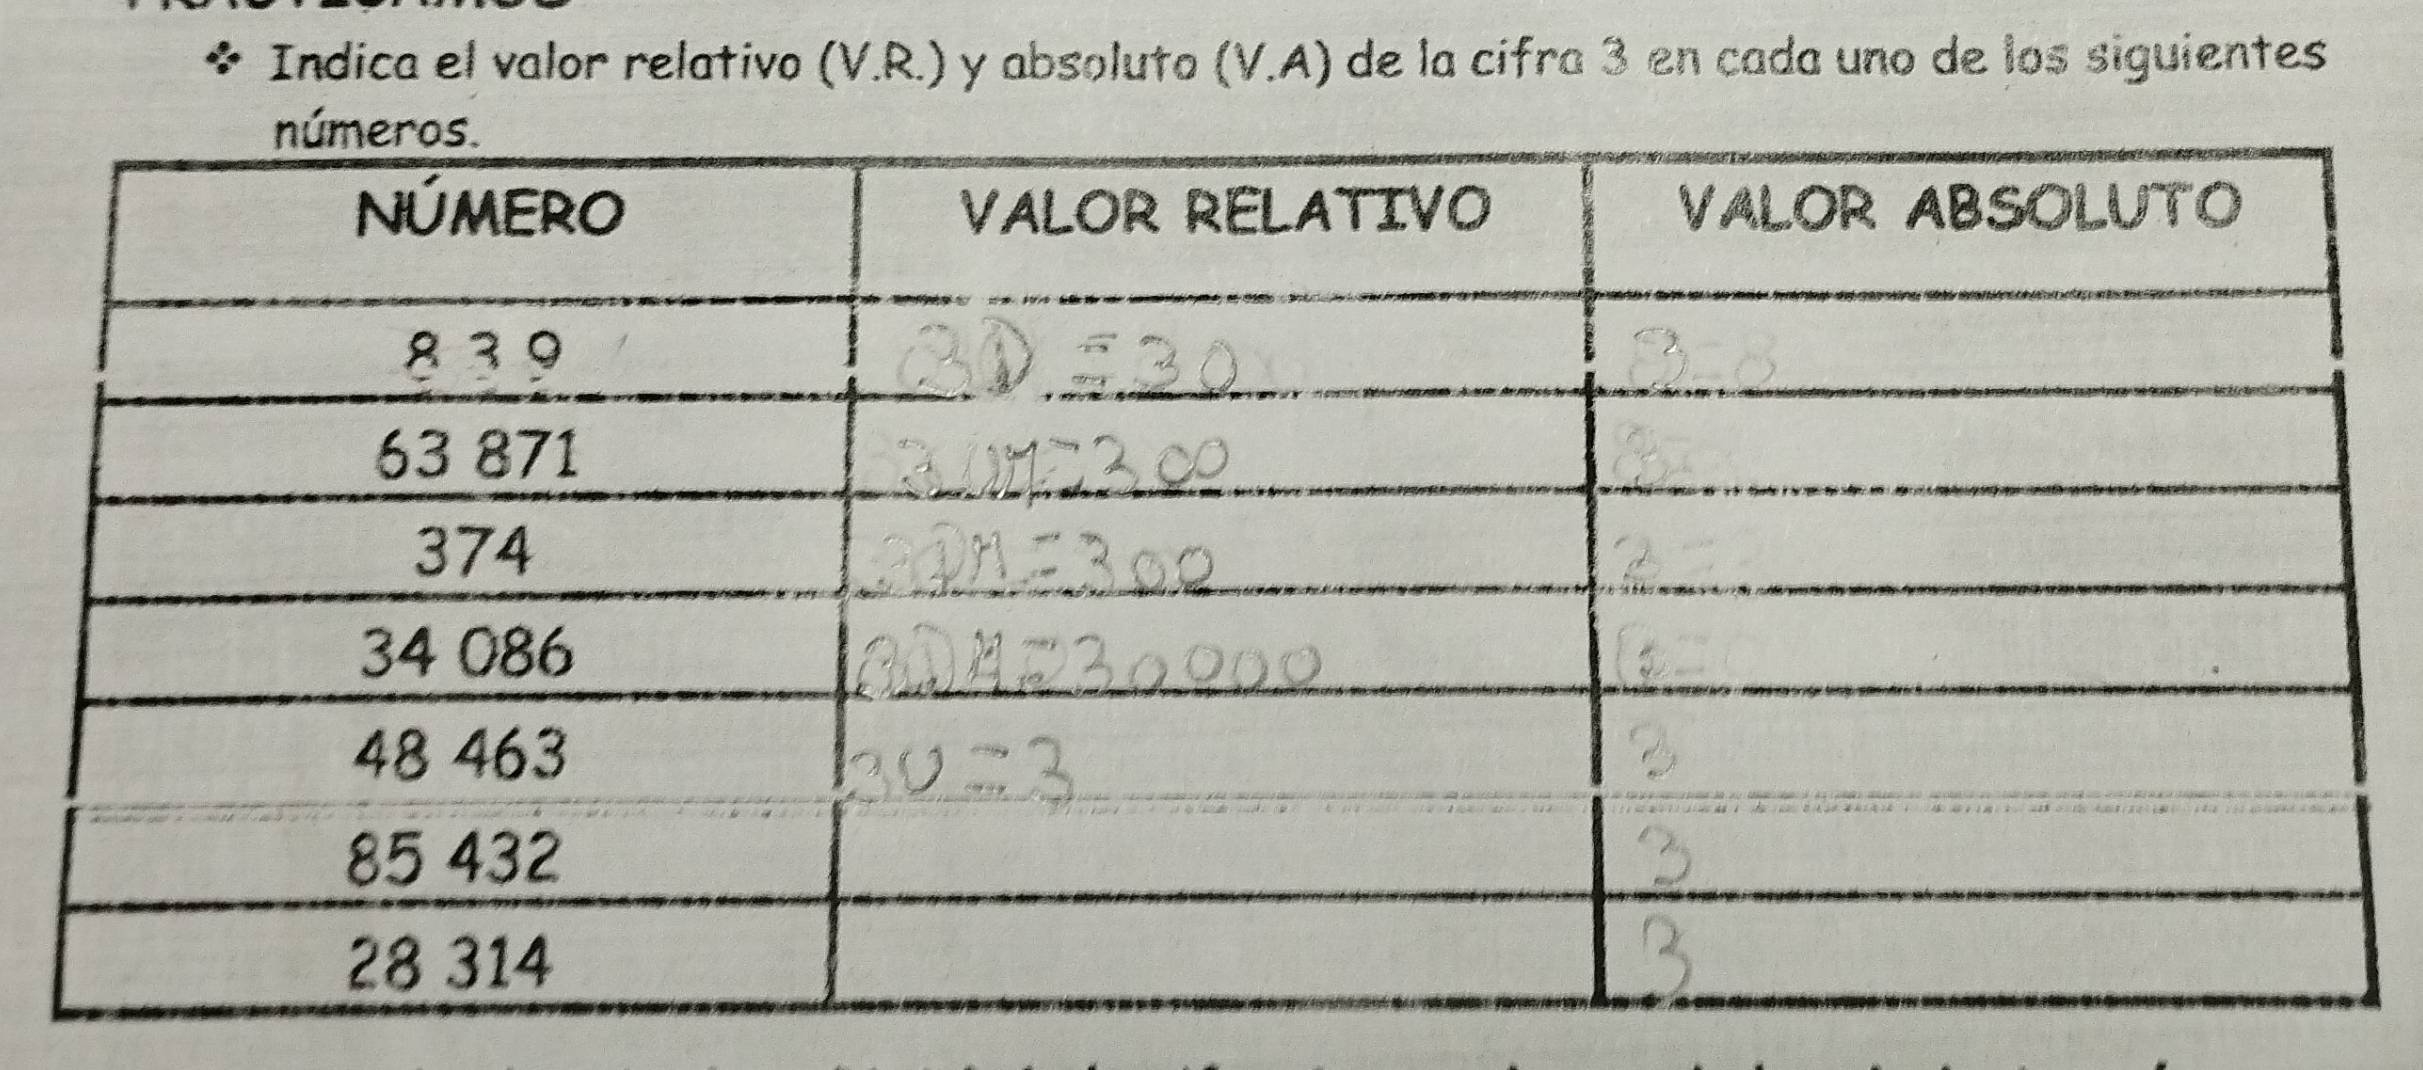 ❖ Indica el valor relativo (V.R.) y absoluto (V.A) de la cifra 3 en cada uno de los siguientes
números.
NÚMERO VALOR RELATIVO VALOR ABSOLUTO
8 3 9 3D = 30 3
63 871 3UM=300 3
374 3DM=300 3=
34 086 3DM=30000
48 463 3U=3 3
85 432 3
28 314 3